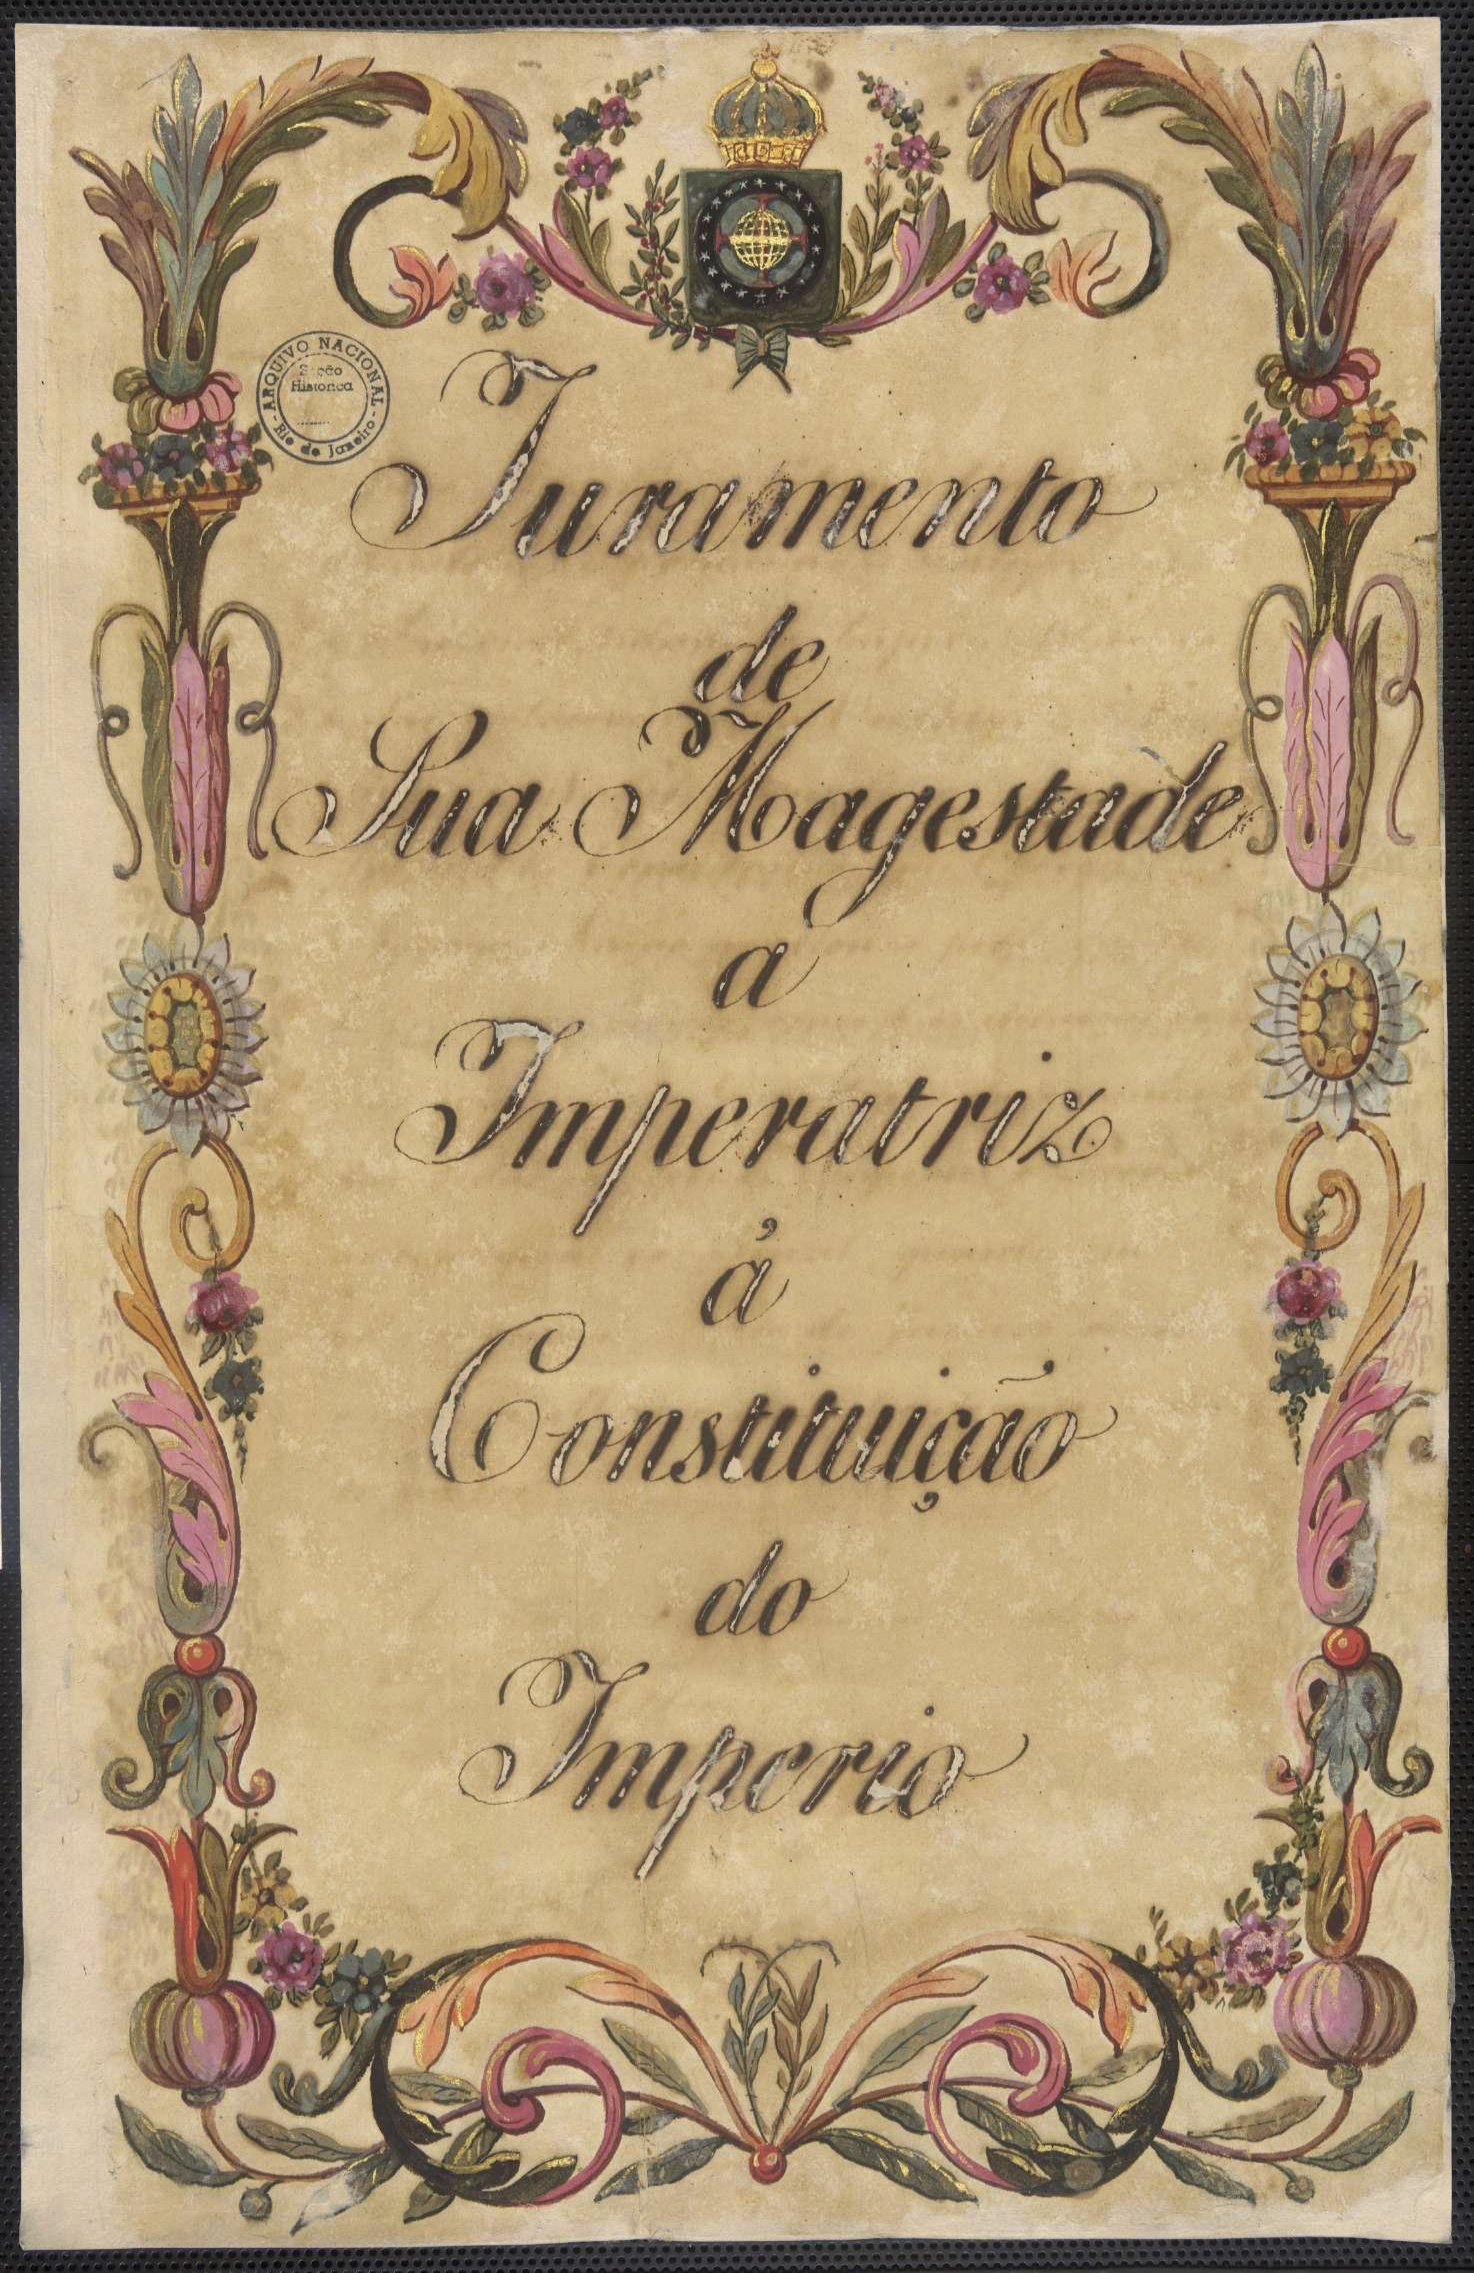 ARQUIVO NACIONAL
Historica
Rio de Janeiro
Juramento
de
Sua Magestade
a
Imperatriz
á
Constituição
do
Imperio